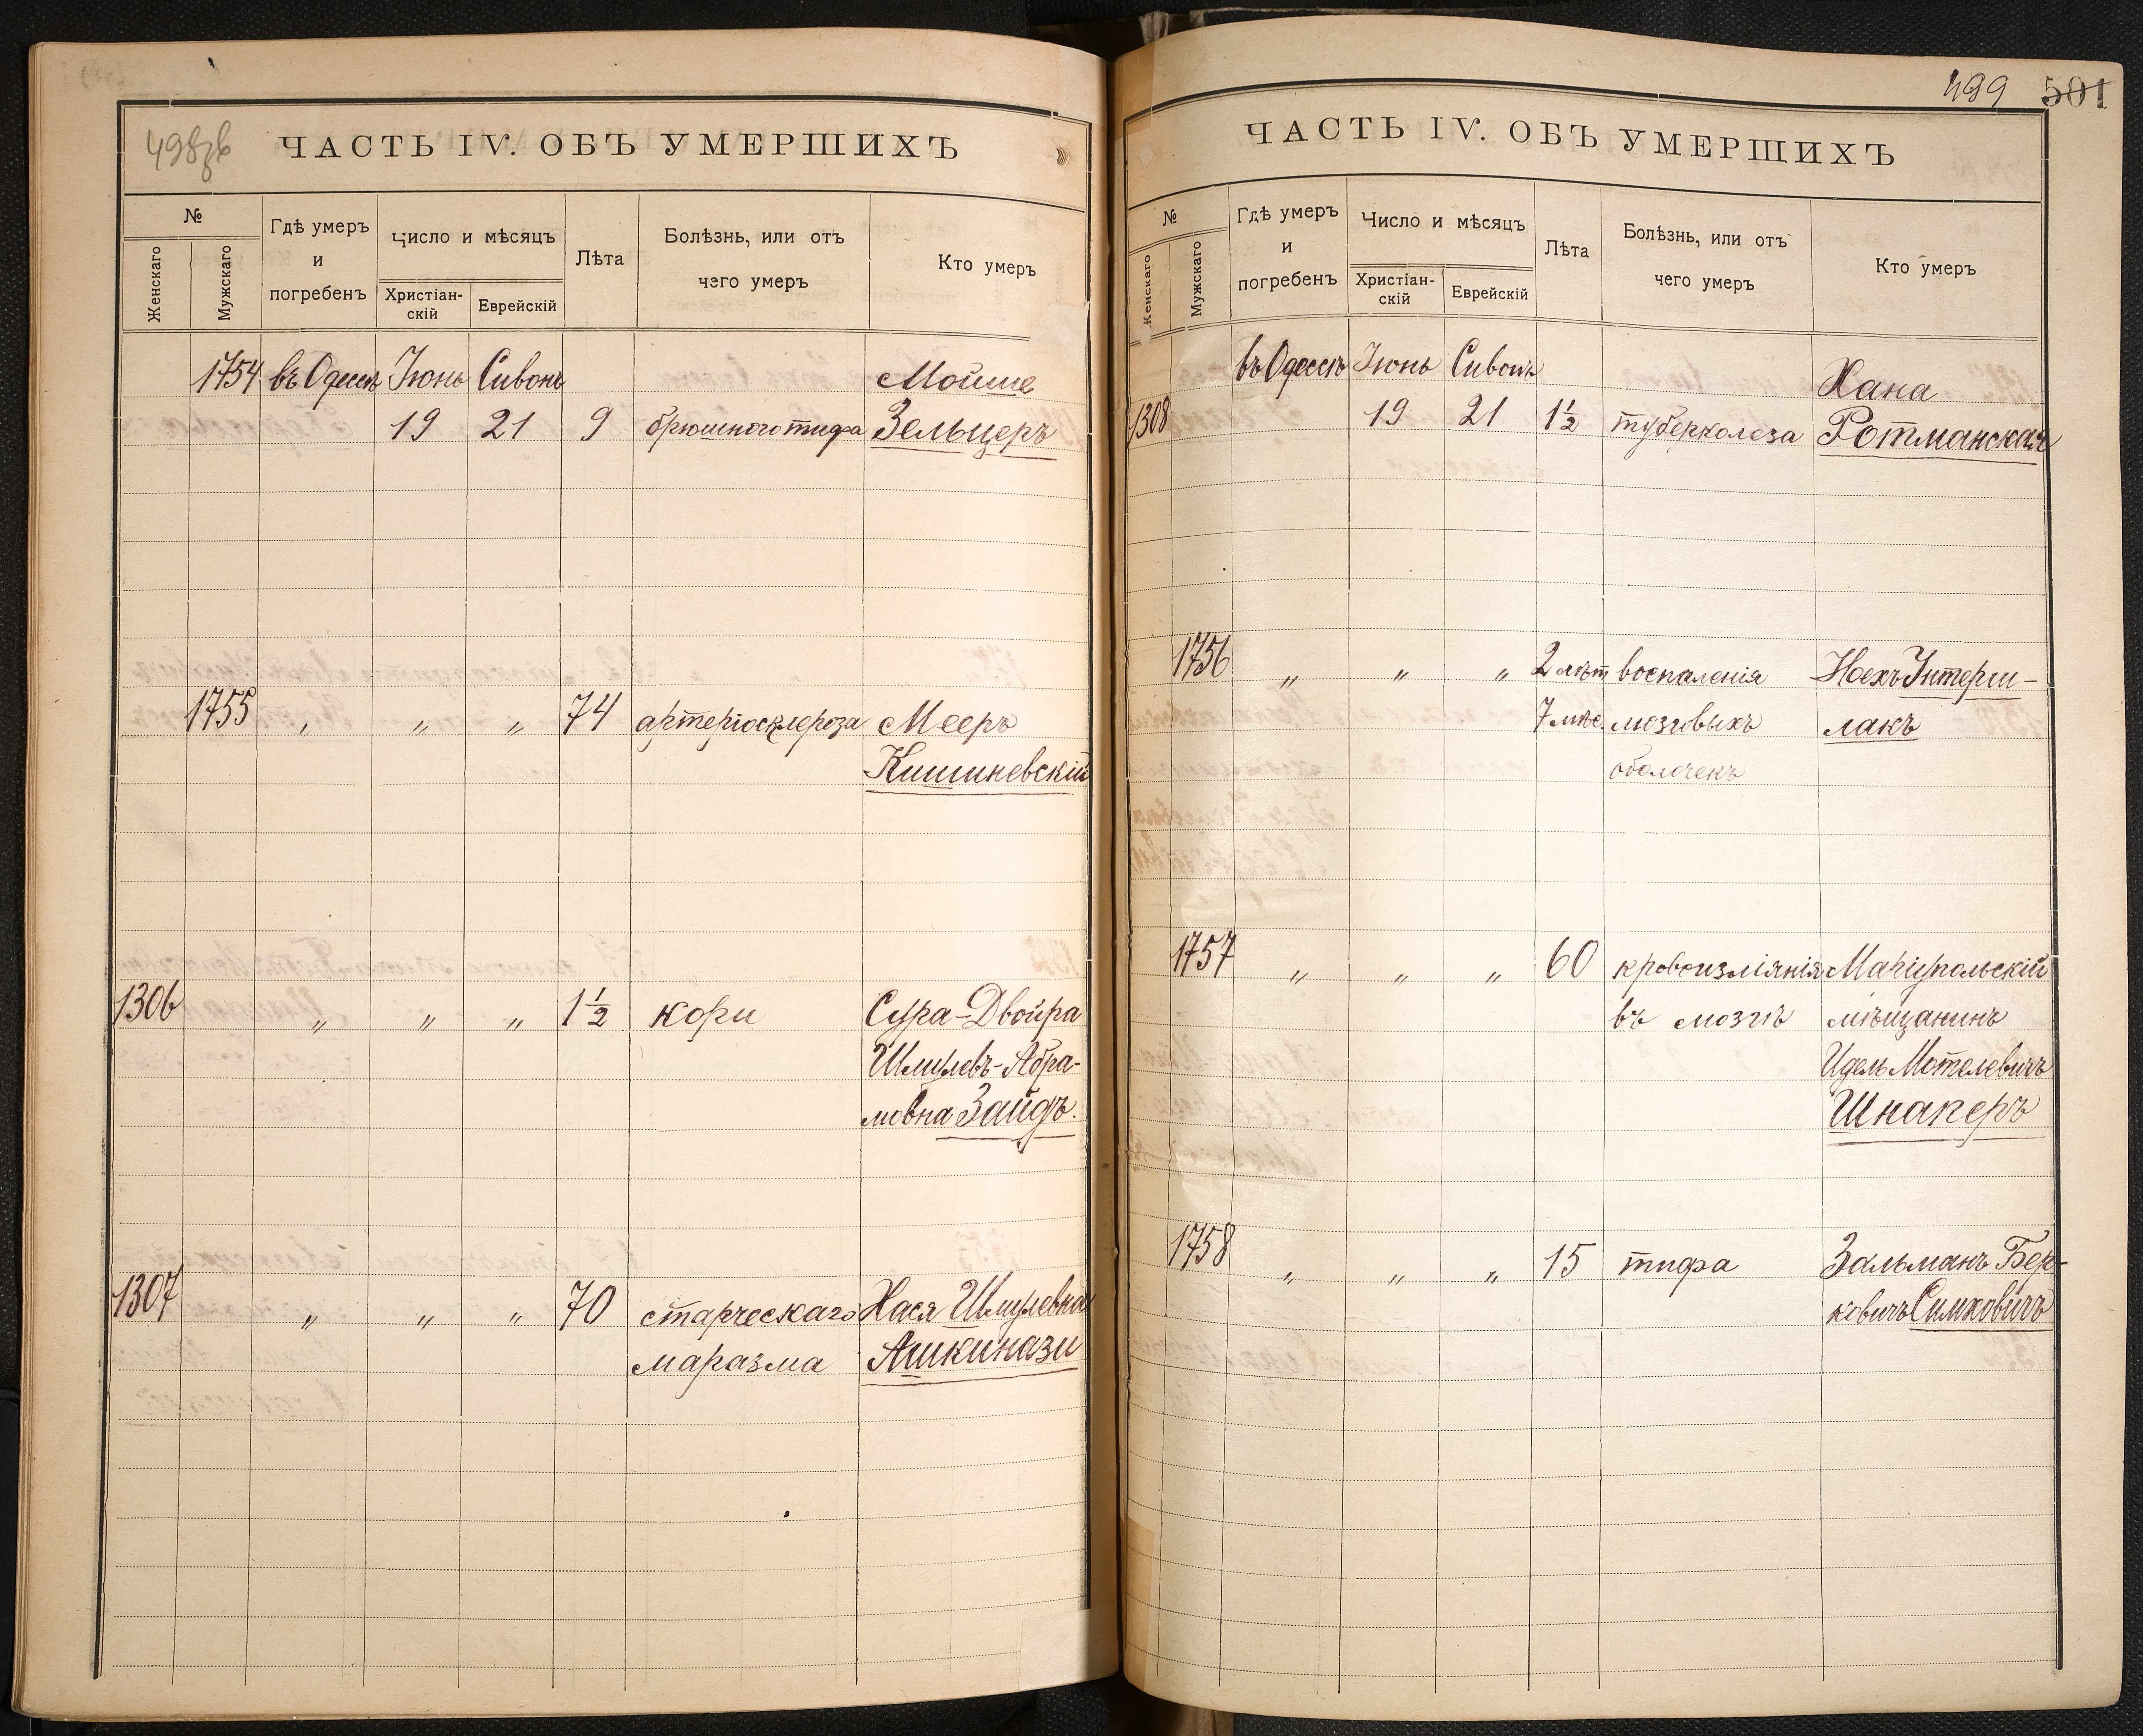 498об
ЧАСТЬ IV. ОБЪ УМЕРШИХЪ
№
Женскаго
Мужскаго
Гдѣ умеръ
и
погребенъ
Число и мѣсяцъ
Христіан-
скій
Еврейскій
Лѣта
Болѣзнь, или отъ
чего умеръ
Кто умеръ
1754 въ Одессѣ Іюнь Сивонъ Мойше
19 21 9 брюшного тифа Зельцеръ
1755 „ „ „ 74 артеріосклероза Мееръ
Кишиневскій
1306 „ „ „ 1½ кори Сура-Двойра
Шмулевъ-Абра-
мовна Зайдъ.
1307 „ „ „ 70 старческаго Хася Шмулевна
маразма Ашкинази
499 501
ЧАСТЬ IV. ОБЪ УМЕРШИХЪ
№
Женскаго
Мужскаго
Гдѣ умеръ
и
погребенъ
Число и мѣсяцъ
Христіан-
скій
Еврейскій
Лѣта
Болѣзнь, или отъ
чего умеръ
Кто умеръ
въ Одессѣ Іюнь Сивонъ Хана
1308 19 21 1½ туберколеза Ротманская
1756 „ „ „ 2 лѣт воспаленія Ноехъ Унтерш-
7 мѣс. мозговыхъ лакъ
оболочекъ
1757 „ „ „ 60 кровоизліянія Маріупольскій
въ мозгѣ мѣщанинъ
Идель Мотелевичъ
Шнаперъ
1758 „ „ „ 15 тифа Зальманъ Бер-
ковичъ Симховичъ